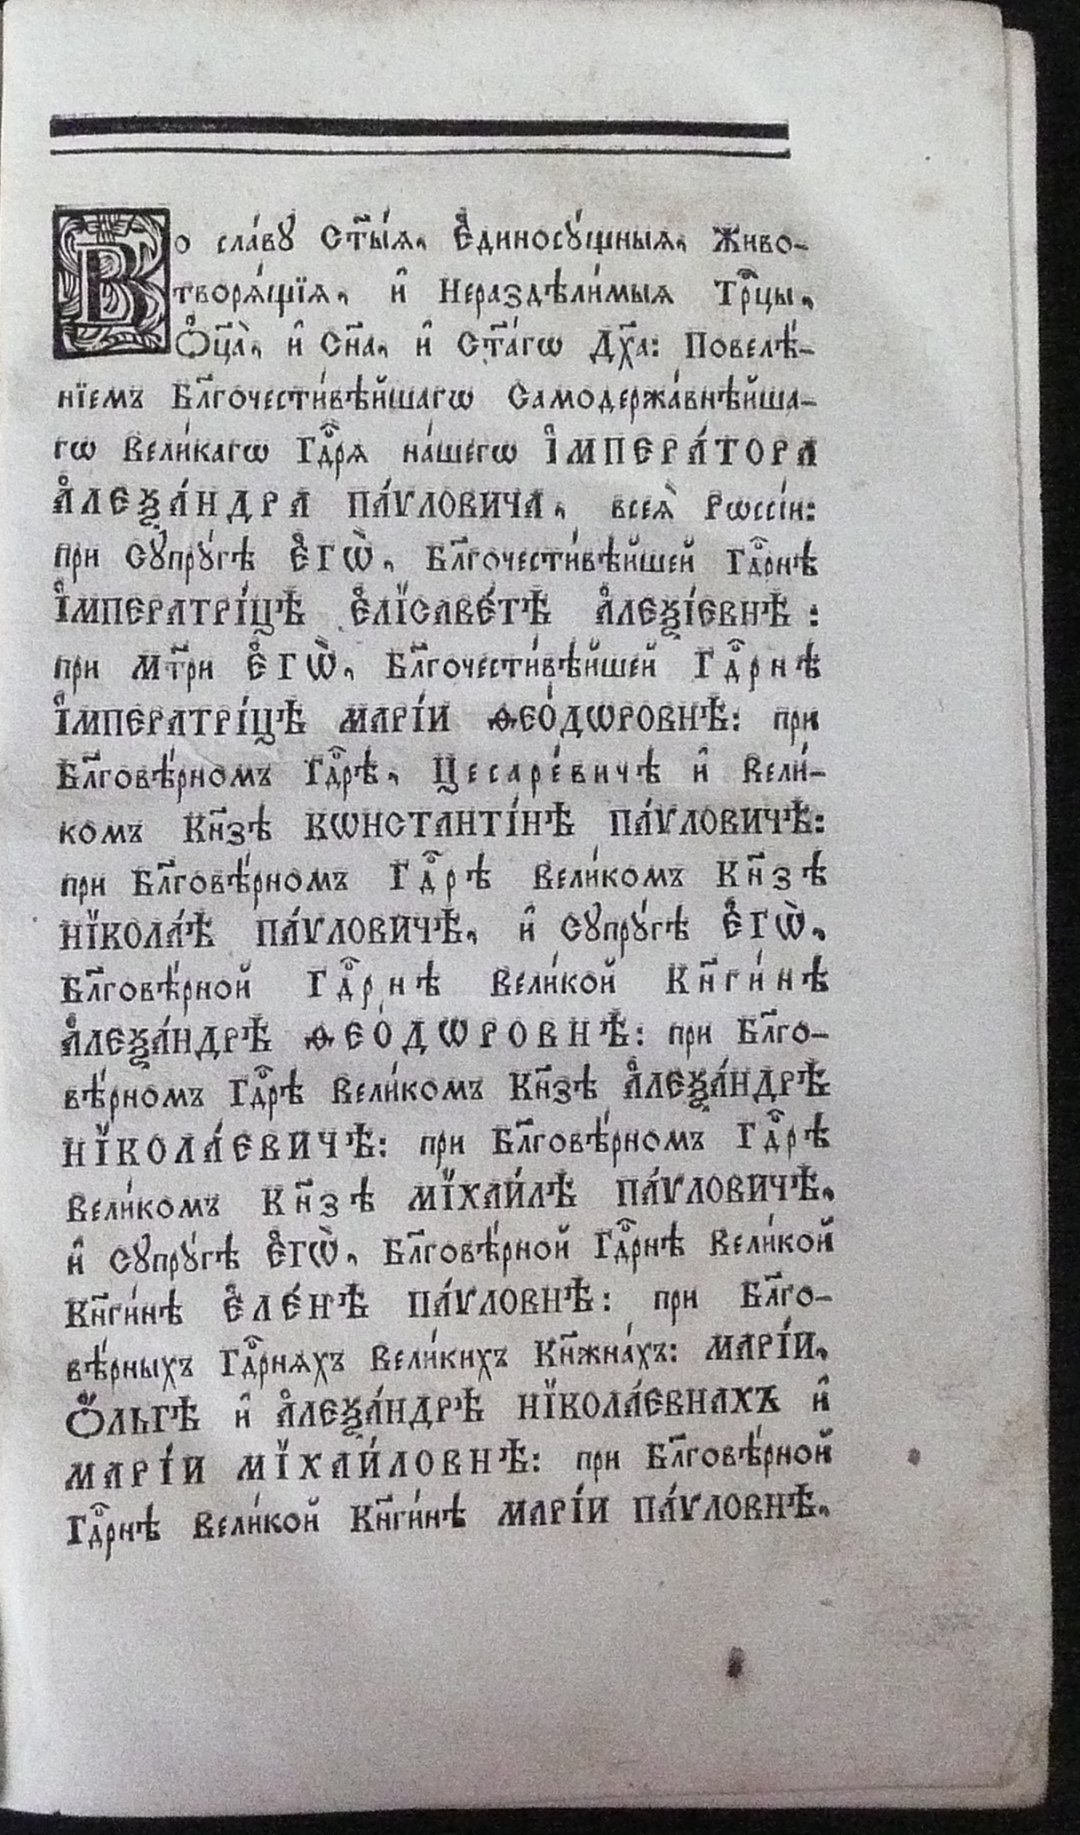 Во сла́вꙋ Ст҃ы́ѧ, Е҆диносꙋ́щныѧ, Живо-
творѧ́щїѧ, и҆ Нераздѣли́мыѧ Трⷪ҇цы,
Ѻ҆ц҃а̀, и҆ Сн҃а, и҆ Ст҃а́гѡ Дх҃а: Повелѣ́-
нїемъ Бл҃гочести́вѣйшагѡ Самодержа́внѣйша-
гѡ Вели́кагѡ Гдⷭ҇рѧ на́шегѡ І҆МПЕРА́ТОРА
А҆ЛЕѮА́НДРА ПА́ѴЛОВИЧА, всеѧ̀ Рѡссі́и:
при Сꙋпрꙋ́гѣ Е҆ГѠ̀, Бл҃гочести́вѣйшей Гдⷭ҇рнѣ
І҆МПЕРАТРІ́ЦѢ Е҆ЛІСАВЕ́ТѢ А҆ЛЕѮІ́ЕВНѢ:
при Мт҃ри Е҆ГѠ̀, Бл҃гочести́вѣйшей Гдⷭ҇рнѣ
І҆МПЕРАТРІ́ЦѢ МАРІ́И ѲЕО́ДѠРОВНѢ: при
Бл҃говѣ́рномъ Гдⷭ҇рѣ, Цесаре́вичѣ и҆ Вели́-
комъ Кн҃зѣ КѠНСТАНТІ́НѢ ПА́ѴЛОВИЧѢ:
при Бл҃говѣ́рномъ Гдⷭ҇рѣ Вели́комъ Кн҃зѣ
НЇКОЛА́Ѣ ПА́ѴЛОВИЧѢ, и҆ Сꙋпрꙋ́гѣ Е҆ГѠ̀,
Бл҃говѣ́рной Гдⷭ҇рнѣ Вели́кой Кн҃ги́нѣ
А҆ЛЕѮА́НДРѢ ѲЕО́ДѠРОВНѢ: при Бл҃го-
вѣ́рномъ Гдⷭ҇рѣ Вели́комъ Кн҃зѣ А҆ЛЕѮА́НДРѢ
НЇКОЛА́ЕВИЧѢ: при Бл҃говѣ́рномъ Гдⷭ҇рѣ
Вели́комъ Кн҃зѣ МЇХАИ́ЛѢ ПА́ѴЛОВИЧѢ,
и҆ Сꙋпрꙋ́гѣ Е҆ГѠ̀, Бл҃говѣ́рной Гдⷭ҇рнѣ Вели́кой
Кн҃ги́нѣ Е҆ЛЕ́НѢ ПА́ѴЛОВНѢ: при Бл҃го-
вѣ́рныхъ Гдⷭ҇рнѧхъ Вели́кихъ Кн҃жна́хъ: МАРІ́И,
Ѻ҆́ЛЬГѢ и҆ А҆ЛЕѮА́НДРѢ НЇКОЛА́ЕВНАХЪ и҆
МАРІ́И МЇХАИ́ЛОВНѢ: при Бл҃говѣ́рной
Гдⷭ҇рнѣ Вели́кой Кн҃ги́нѣ МАРІ́И ПА́ѴЛОВНѢ,